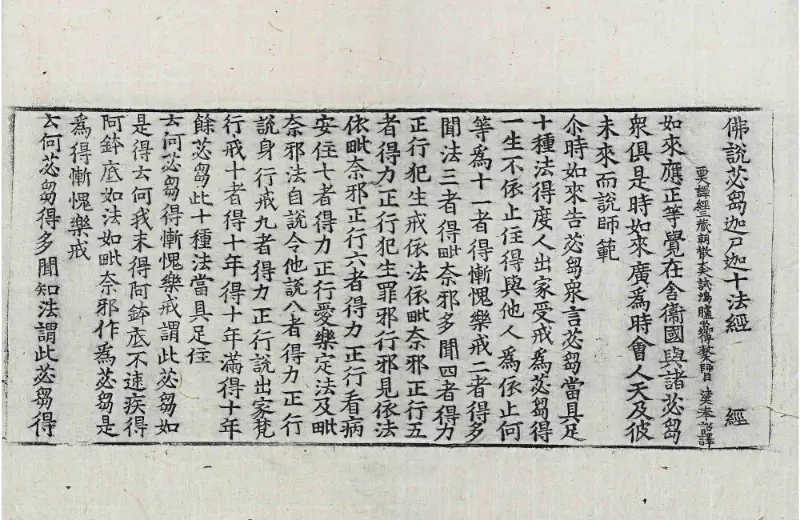 佛說苾芻迦尸迦十法經 經
譯經三藏朝散大夫試鴻臚 傳教大師 奉詔譯
如來應正等覺在舍衛國與諸苾芻
衆俱是時如來廣爲時會人天及彼
未來而說師範
尒時如來告苾芻衆言苾芻當具足
十種法得度人出家受戒爲苾芻得
一生不依止住得與他人爲依止何
等爲十一者得慚愧樂戒二者得多
聞法三者得毗奈邪多聞四者得力
正行犯生戒依法依毗奈邪正行五
者得力正行犯生罪邪行邪見依法
依毗奈邪正行六者得力正行看病
安住七者得力正行愛樂定法及毗
奈邪法自說令他說八者得力正行
說身行戒九者得力正行說出家梵
行戒十者得十年得十年滿得十年
餘苾芻此十種法當具足住
云何苾芻得慚愧樂戒謂此苾芻如
是得云何我未得阿鉢底不速疾得
阿鉢底如法如毗奈邪作爲苾芻是
爲得慚愧樂戒
云何苾芻得多聞知法謂此苾芻得